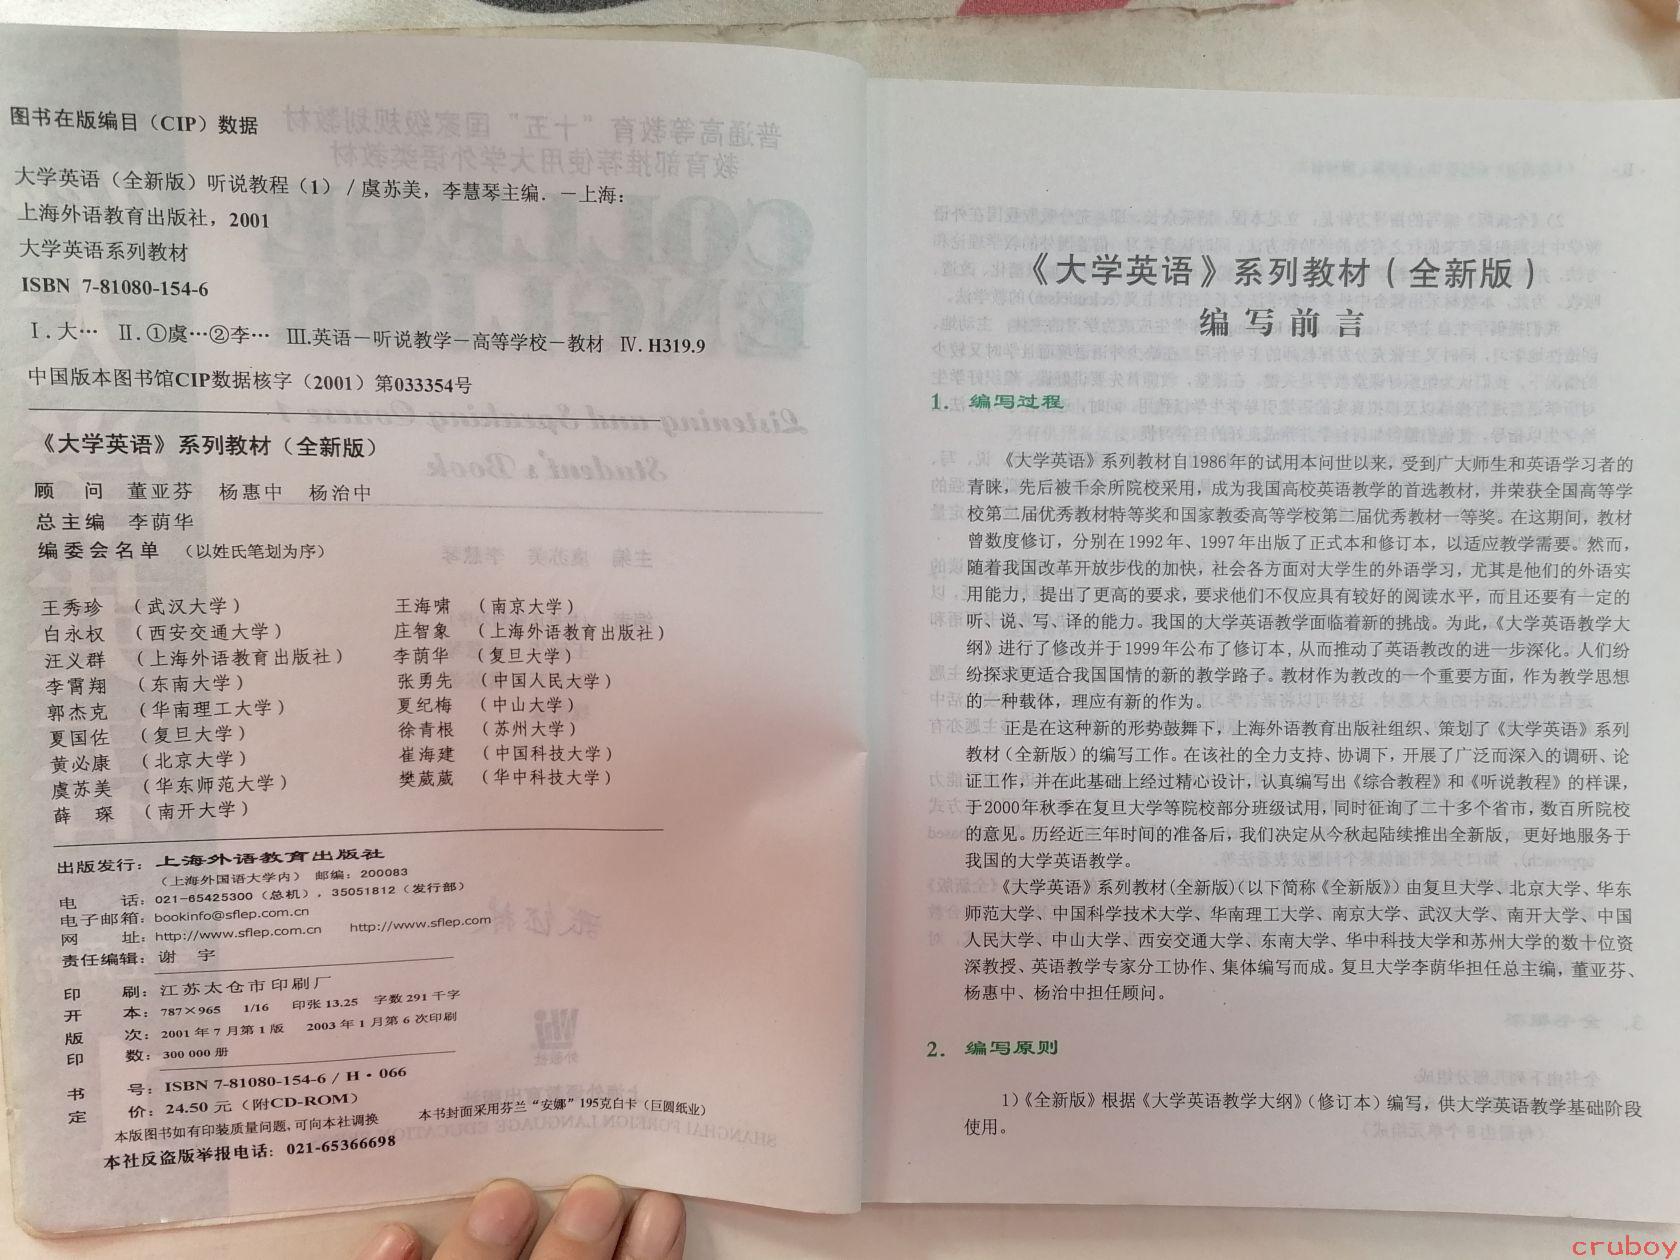 图书在版编目（CIP）数据
大学英语（全新版）听说教程（1）/ 虞苏美，李慧琴主编．－上海：
上海外语教育出版社，2001
大学英语系列教材
ISBN 7-81080-154-6
Ⅰ.大… Ⅱ.①虞…②李… Ⅲ.英语－听说教学－高等学校－教材 Ⅳ. H319.9
中国版本图书馆CIP数据核字（2001）第033354号
《大学英语》系列教材（全新版）
顾 问 董亚芬 杨惠中 杨治中
总主编 李荫华
编委会名单 （以姓氏笔划为序）
王秀珍 （武汉大学） 王海啸 （南京大学）
白永权 （西安交通大学） 庄智象 （上海外语教育出版社）
汪义群 （上海外语教育出版社） 李荫华 （复旦大学）
李霄翔 （东南大学） 张勇先 （中国人民大学）
郭杰克 （华南理工大学） 夏纪梅 （中山大学）
夏国佐 （复旦大学） 徐青根 （苏州大学）
黄必康 （北京大学） 崔海建 （中国科技大学）
虞苏美 （华东师范大学） 樊葳葳 （华中科技大学）
薛 琛 （南开大学）
出版发行：上海外语教育出版社
（上海外国语大学内） 邮编：200083
电 话：021-65425300（总机），35051812（发行部）
电子邮箱：bookinfo@sflep.com.cn
网 址：http://www.sflep.com.cn http://www.sflep.com
责任编辑：谢 宇
印 刷：江苏太仓市印刷厂
开 本：787×965 1/16 印张 13.25 字数 291 千字
版 次：2001 年 7 月第 1 版 2003 年 1 月第 6 次印刷
印 数：300 000 册
书 号：ISBN 7-81080-154-6 / H · 066
定 价：24.50 元（附CD-ROM）
本版图书如有印装质量问题，可向本社调换 本书封面采用芬兰“安娜”195克白卡（巨圆纸业）
本社反盗版举报电话：021-65366698
《大学英语》系列教材（全新版）
编写前言
1. 编写过程
《大学英语》系列教材自1986年的试用本问世以来，受到广大师生和英语学习者的
青睐，先后被千余所院校采用，成为我国高校英语教学的首选教材，并荣获全国高等学
校第二届优秀教材特等奖和国家教委高等学校第二届优秀教材一等奖。在这期间，教材
曾数度修订，分别在1992年、1997年出版了正式本和修订本，以适应教学需要。然而，
随着我国改革开放步伐的加快，社会各方面对大学生的外语学习，尤其是他们的外语实
用能力，提出了更高的要求，要求他们不仅应具有较好的阅读水平，而且还要有一定的
听、说、写、译的能力。我国的大学英语教学面临着新的挑战。为此，《大学英语教学大
纲》进行了修改并于1999年公布了修订本，从而推动了英语教改的进一步深化。人们纷
纷探求更适合我国国情的新的教学路子。教材作为教改的一个重要方面，作为教学思想
的一种载体，理应有新的作为。
正是在这种新的形势鼓舞下，上海外语教育出版社组织、策划了《大学英语》系列
教材（全新版）的编写工作。在该社的全力支持、协调下，开展了广泛而深入的调研、论
证工作，并在此基础上经过精心设计，认真编写出《综合教程》和《听说教程》的样课，
于2000年秋季在复旦大学等院校部分班级试用，同时征询了二十多个省市，数百所院校
的意见。历经近三年时间的准备后，我们决定从今秋起陆续推出全新版，更好地服务于
我国的大学英语教学。
《大学英语》系列教材(全新版)（以下简称《全新版》）由复旦大学、北京大学、华东
师范大学、中国科学技术大学、华南理工大学、南京大学、武汉大学、南开大学、中国
人民大学、中山大学、西安交通大学、东南大学、华中科技大学和苏州大学的数十位资
深教授、英语教学专家分工协作、集体编写而成。复旦大学李荫华担任总主编，董亚芬、
杨惠中、杨治中担任顾问。
2. 编写原则
1）《全新版》根据《大学英语教学大纲》（修订本）编写，供大学英语教学基础阶段
使用。
cruboy